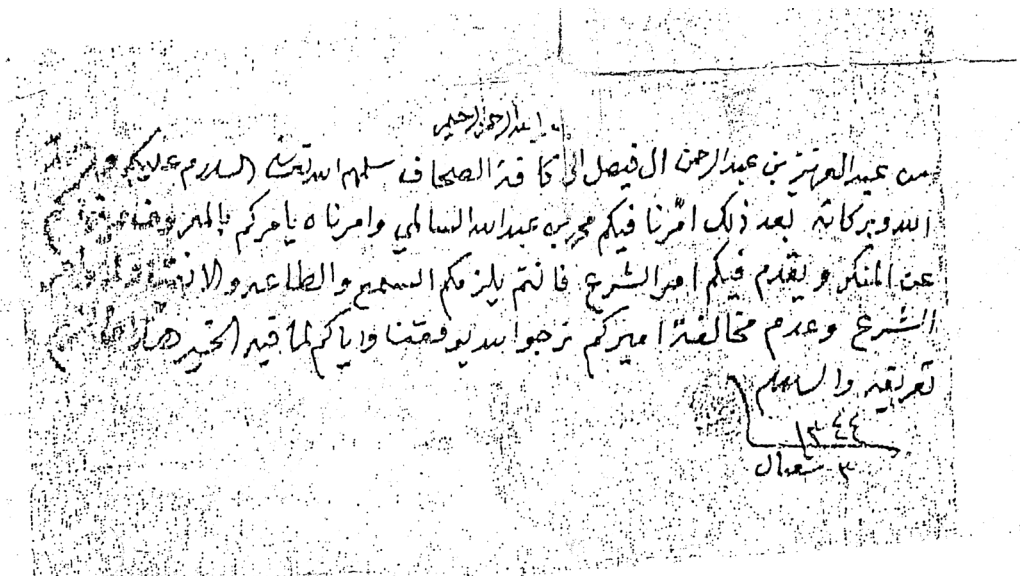 بسم الله الرحمن الرحيم
من عبد العزيز بن عبد الرحمن ال فيصل الى كافة الصحاف سلمهم الله تعالى السلام عليكم ورحمة
الله وبركاته بعد ذلك امّرنا فيكم محمد بن عبد الله السالمي وامرناه يامركم بالمعروف
عن المنكر ويقدم فيكم امر الشرع فانتم يلزمكم السمع والطاعه والانقياد
الشرع وعدم مخالفة اميركم نرجو الله يوفقنا واياكم لما فيه الخير هذا
تعريفه والسلام
١٣٤٤
٣ شعبان